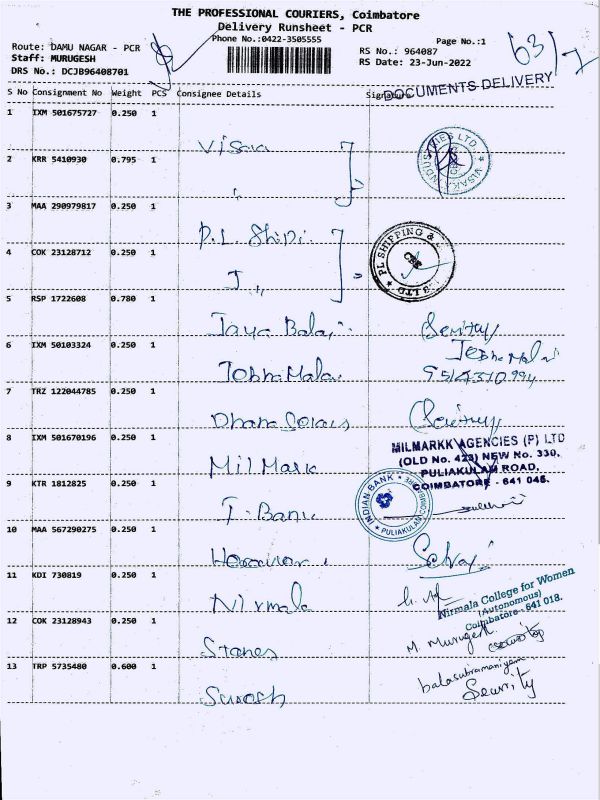 THE PROFESSIONAL COURIERS, Coimbatore
Delivery Runsheet - PCR
Phone No.:0422-3505555
Page No.:1
63/1
Route: DAMU NAGAR - PCR
RS No.: 964087
Staff: MURUGESH
RS Date: 23-Jun-2022
DRS No.: DCJB96408701
DOCUMENTS DELIVERY
S No Consignment No Weight PCS Consignee Details Signature
1 IXM 501675727 0.250 1
2 KRR 5410930 0.795 1
INDUSTRIES LTD. * VISAKA
3 MAA 290979817 0.250 1
PL SHIPPING &
4 COK 23128712 0.250 1
5 RSP 1722608 0.780 1
Jaya Balaji
6 IXM 50103324 0.250 1
9514370994
7 TRZ 122044785 0.250 1
8 IXM 501670196 0.250 1
Mil Mark
MILMARKK AGENCIES (P) LTD
(OLD No. 423) NEW No. 330,
PULIAKULAM ROAD,
COIMBATORE - 641 045.
9 KTR 1812825 0.250 1
I. Bank
INDIAN BANK * PULIAKULAM COIMBATORE
10 MAA 567290275 0.250 1
Selvaji
11 KDI 730819 0.250 1
Nirmala
Nirmala College for Women
(Autonomous)
Coimbatore - 641 018.
12 COK 23128943 0.250 1
Stanes
M. Murugesh
13 TRP 5735480 0.600 1
Suresh
balasubramaniyam
Security